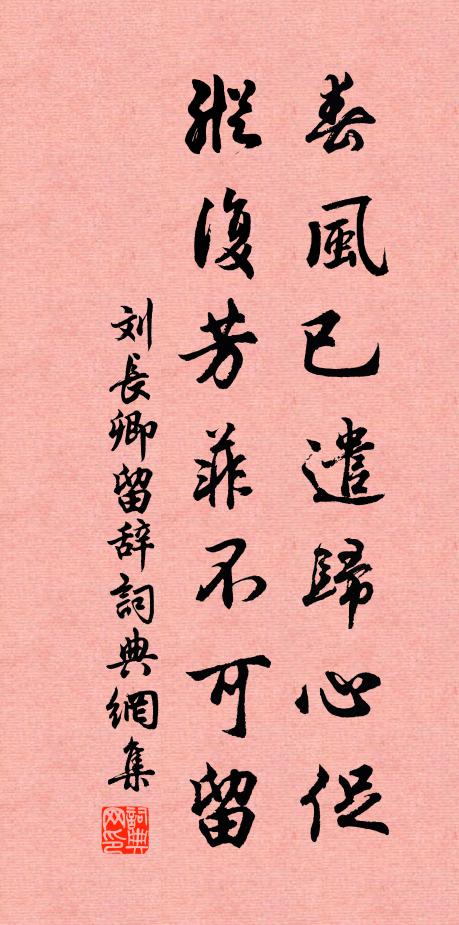 春風已遣歸心促
縱復芳菲不可留
刘長卿留辞詞典網集
詞典网印